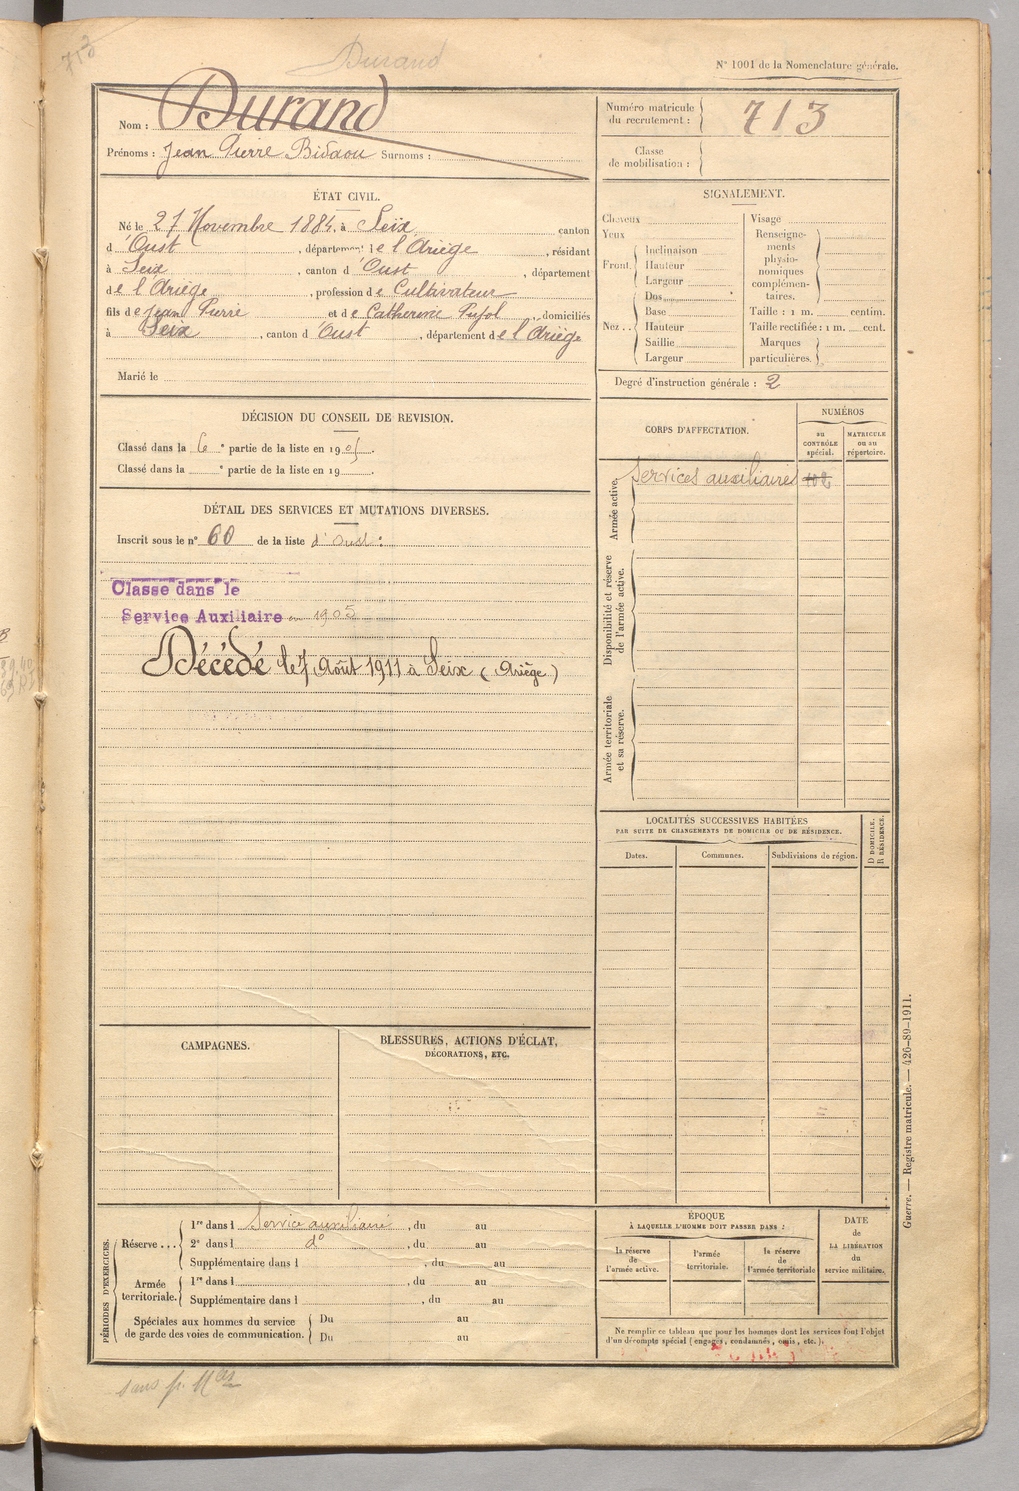 713
Durand
N° 1001 de la Nomenclature générale.
Nom : Durand
Prénoms : Jean Pierre Bidaou Surnoms :
Numéro matricule du recrutement : 713
Classe de mobilisation :
ÉTAT CIVIL.
Né le 27 Novembre 1884, à Seix, canton
d'Oust, département de l'Ariège, résidant
à Seix, canton d'Oust, département
de l'Ariège, profession de Cultivateur
fils de Jean Pierre et de Catherine Pujol, domiciliés
à Seix, canton d'Oust, département de l'Ariège
Marié le
SIGNALEMENT.
Cheveux
Yeux
Front. Inclinaison
Hauteur
Largeur
Nez... Dos
Base
Hauteur
Saillie
Largeur
Visage
Renseignements physionomiques complémentaires.
Taille : 1 m. centim.
Taille rectifiée : 1 m. cent.
Marques particulières.
Degré d'instruction générale : 2
DÉCISION DU CONSEIL DE REVISION.
Classé dans la 6e partie de la liste en 1905.
Classé dans la e partie de la liste en 19 .
DÉTAIL DES SERVICES ET MUTATIONS DIVERSES.
Inscrit sous le n° 60 de la liste d'Oust :
Classé dans le
Service Auxiliaire en 1905
Décédé le 7 Août 1911 à Seix (Ariège)
CORPS D'AFFECTATION.
NUMÉROS
au CONTRÔLE spécial.
MATRICULE ou au répertoire.
Armée active.
Services auxiliaires
Disponibilité et réserve de l'armée active.
Armée territoriale et sa réserve.
LOCALITÉS SUCCESSIVES HABITÉES
PAR SUITE DE CHANGEMENTS DE DOMICILE OU DE RÉSIDENCE.
Dates.
Communes.
Subdivisions de région.
D DOMICILE.
R RÉSIDENCE.
CAMPAGNES.
BLESSURES, ACTIONS D'ÉCLAT,
DÉCORATIONS, ETC.
PÉRIODES D'EXERCICES.
Réserve ... 1re dans l Service auxiliaire, du au
2e dans l d°, du au
Supplémentaire dans l , du au
Armée territoriale. 1re dans l , du au
Supplémentaire dans l , du au
Spéciales aux hommes du service de garde des voies de communication. Du au
Du au
ÉPOQUE
À LAQUELLE L'HOMME DOIT PASSER DANS :
la réserve de l'armée active.
l'armée territoriale.
la réserve de l'armée territoriale
DATE de LA LIBÉRATION du service militaire.
Ne remplir ce tableau que pour les hommes dont les services font l'objet
d'un décompte spécial (engagés, condamnés, omis, etc.).
Guerre. — Registre matricule. — 426-89-1911.